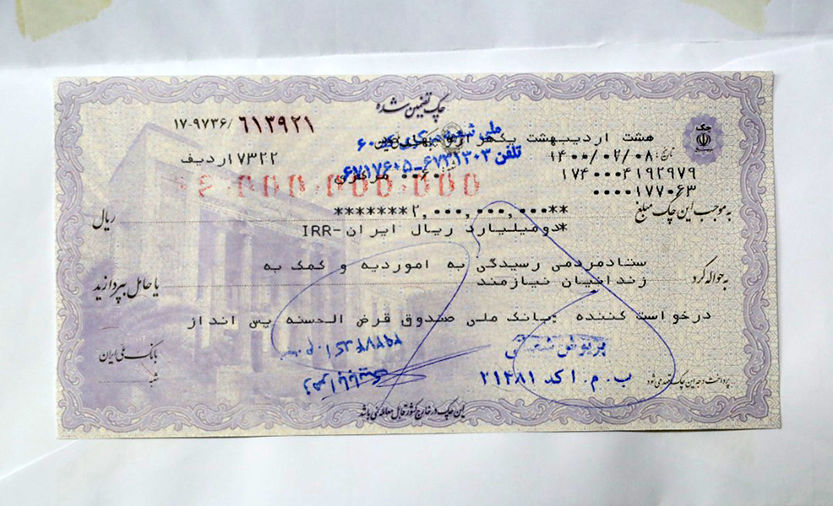 چک تضمین شده
۱۷-۹۷۳۶/ ۶۱۳۹۲۱
چک
هشت اردیبهشت یکهزار و
ملی شعبه مرکزی کد ۶۰
تاریخ: ۱۴۰۰/۰۲/۰۸
تلفن ۶۷۳۱۳۰۳-۶۷۱۷۶۰۵
ردیف ۱۷۳۲۲
۱۷۴۰۰۰۴۱۹۲۹۷۹
۰۰۰۰۱۷۷۰۶۳
به موجب این چک مبلغ **۲,۰۰۰,۰۰۰,۰۰۰******* ریال
*دومیلیارد ریال ایران-IRR
به حواله کرد ستادمردمی رسیدگی به اموردیه و کمک به زندانیان نیازمند یا حامل بپردازید
درخواست کننده :بانک ملی صندوق قرض الحسنه پس انداز
بانک ملی ایران
شعبه
ب.م.ا کد ۲۱۴۸۱
پرداخت وجه این چک تعهد می شود
این چک در خارج کشور قابل معامله نمی باشد